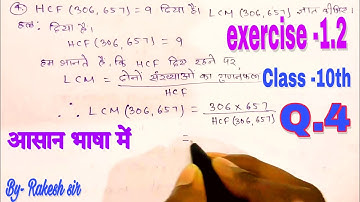 ④ HCF (306, 657) = 9 दिया है। LCM (306, 657) ज्ञात कीजिए।
हल: दिया है।
HCF (306, 657) = 9
हम जानते हैं, कि HCF दिए रहने पर,
LCM = दोनों संख्याओं का गुणनफल
HCF
∴ LCM (306, 657) = 306 × 657
HCF (306, 657)
=
exercise -1.2
Class -10th
Q.4
आसान भाषा में
By- Rakesh sir